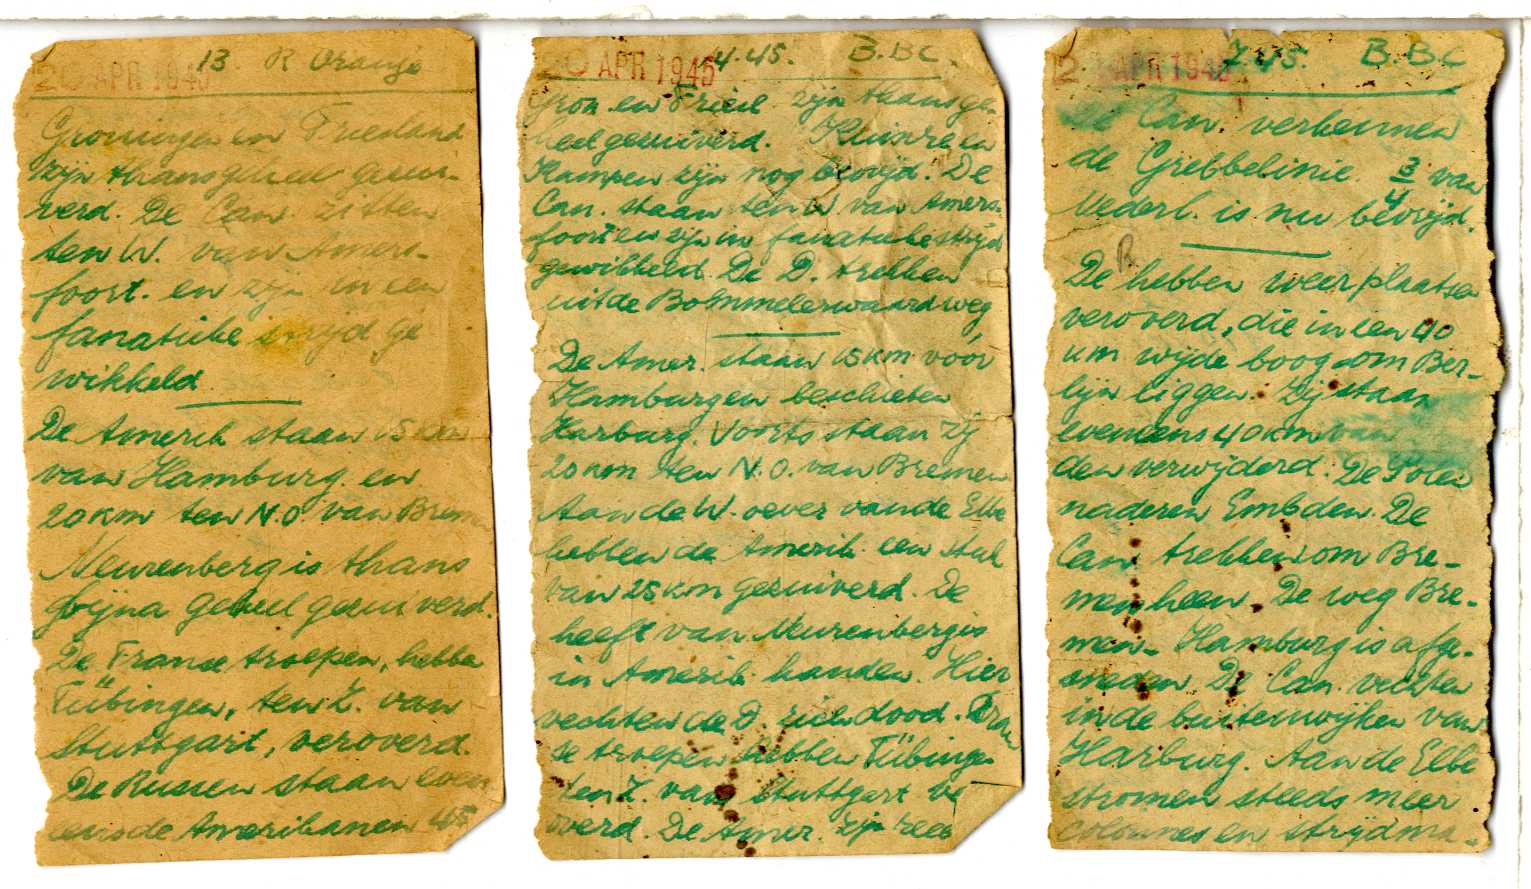 13 R Oranje
20 APR 1945
Groningen en Friesland
zijn thans geheel gezui-
verd. De Can. zitten
ten W. van Amers-
foort. en zijn in een
fanatieke strijd ge
wikkeld
De Amerik staan 15 km
van Hamburg en
20 km ten N.O. van Bremen
Neurenberg is thans
bijna geheel gezuiverd.
De Franse troepen, hebben
Tübingen, ten Z. van
Stuttgart, veroverd.
De Russen staan even
eens de Amerikanen 45
20 APR 1945 4.45. B.BC.
Gron en Friesl zijn thans ge-
heel gezuiverd. Kuinre en
Kampen zijn nog bevrijd. De
Can. staan ten W van Amers-
foort en zijn in fanatieke strijd
gewikkeld. De D. trekken
uit de Bommelerwaard weg
De Amer. staan 15 km. vóór
Hamburg en beschieten
Harburg. Voorts staan zij
20 km ten N.O. van Bremen
Aan de W. oever van de Elbe
hebben de Amerik. een stuk
van 25 km gezuiverd. De
heeft van Neurenberg is
in Amerik. handen. Hier
vechten de D. zich dood. Fran
se troepen hebben Tübingen
ten Z. van Stuttgart ve
overd. De Amer. zijn reeds
2 APR 1945 7.45. B.BC
De Can. verkennen
de Grebbelinie. 3/4 van
Nederl. is nu bevrijd.
De R hebben weer plaatsen
veroverd, die in een 40
km wijde boog om Ber-
lijn liggen. Zij staan
eveneens 40 km van
den verwijderd. De Polen
naderen Embden. De
Can trekken om Bre-
men heen. De weg Bre-
men - Hamburg is afge-
sneden De Can. vechten
in de buitenwijken van
Harburg. Aan de Elbe
stromen steeds meer
colonnes en strijdma-